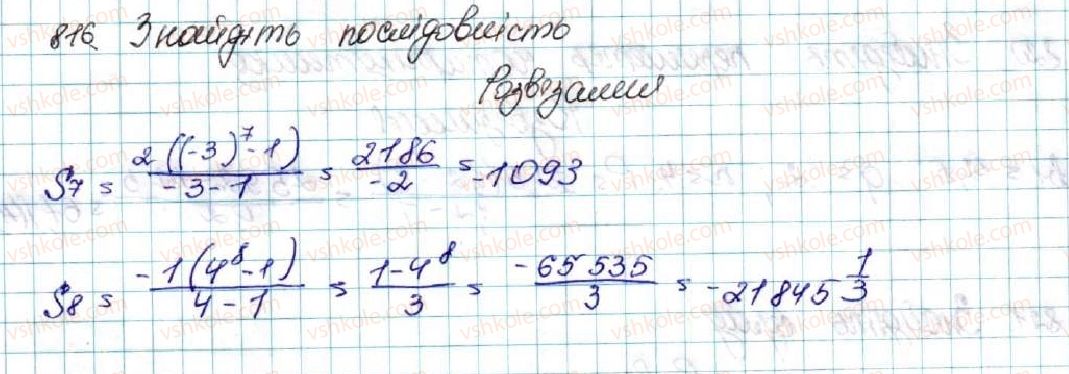 816. Знайдіть послідовність
Розвязання
S7 = 2((-3)^7 - 1) / -3 - 1 = 2186 / -2 = -1093
S8 = -1(4^8 - 1) / 4 - 1 = 1 - 4^8 / 3 = -65 535 / 3 = -21845 1/3